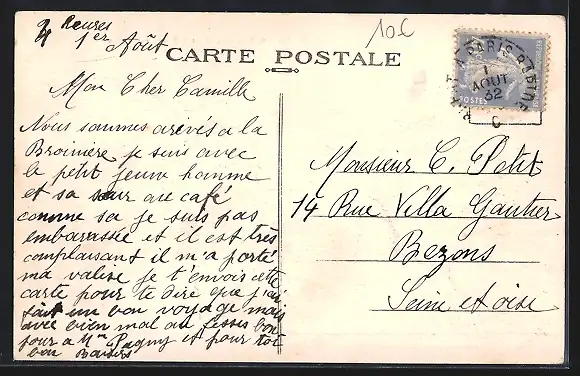 4 heures
1er Août
10c
CARTE POSTALE
A PARIS
1
AOUT
32
C
POSTES
Mon Cher Camille
Nous sommes arivés a la
Broinière je suis avec
le petit jeune homme
et sa sœur au café
comme sa je suis pas
embarassée et il est très
complaisant il m'a porté
ma valise je t'envois cette
carte pour te dire que j'ai
fait un bon voyage mais
avec bien mal au fesses bon
jour a Mme Pagny et pour toi
bon Baisers
Monsieur C. Petit
14 Rue Villa Gautier
Bezons
Seine et oise